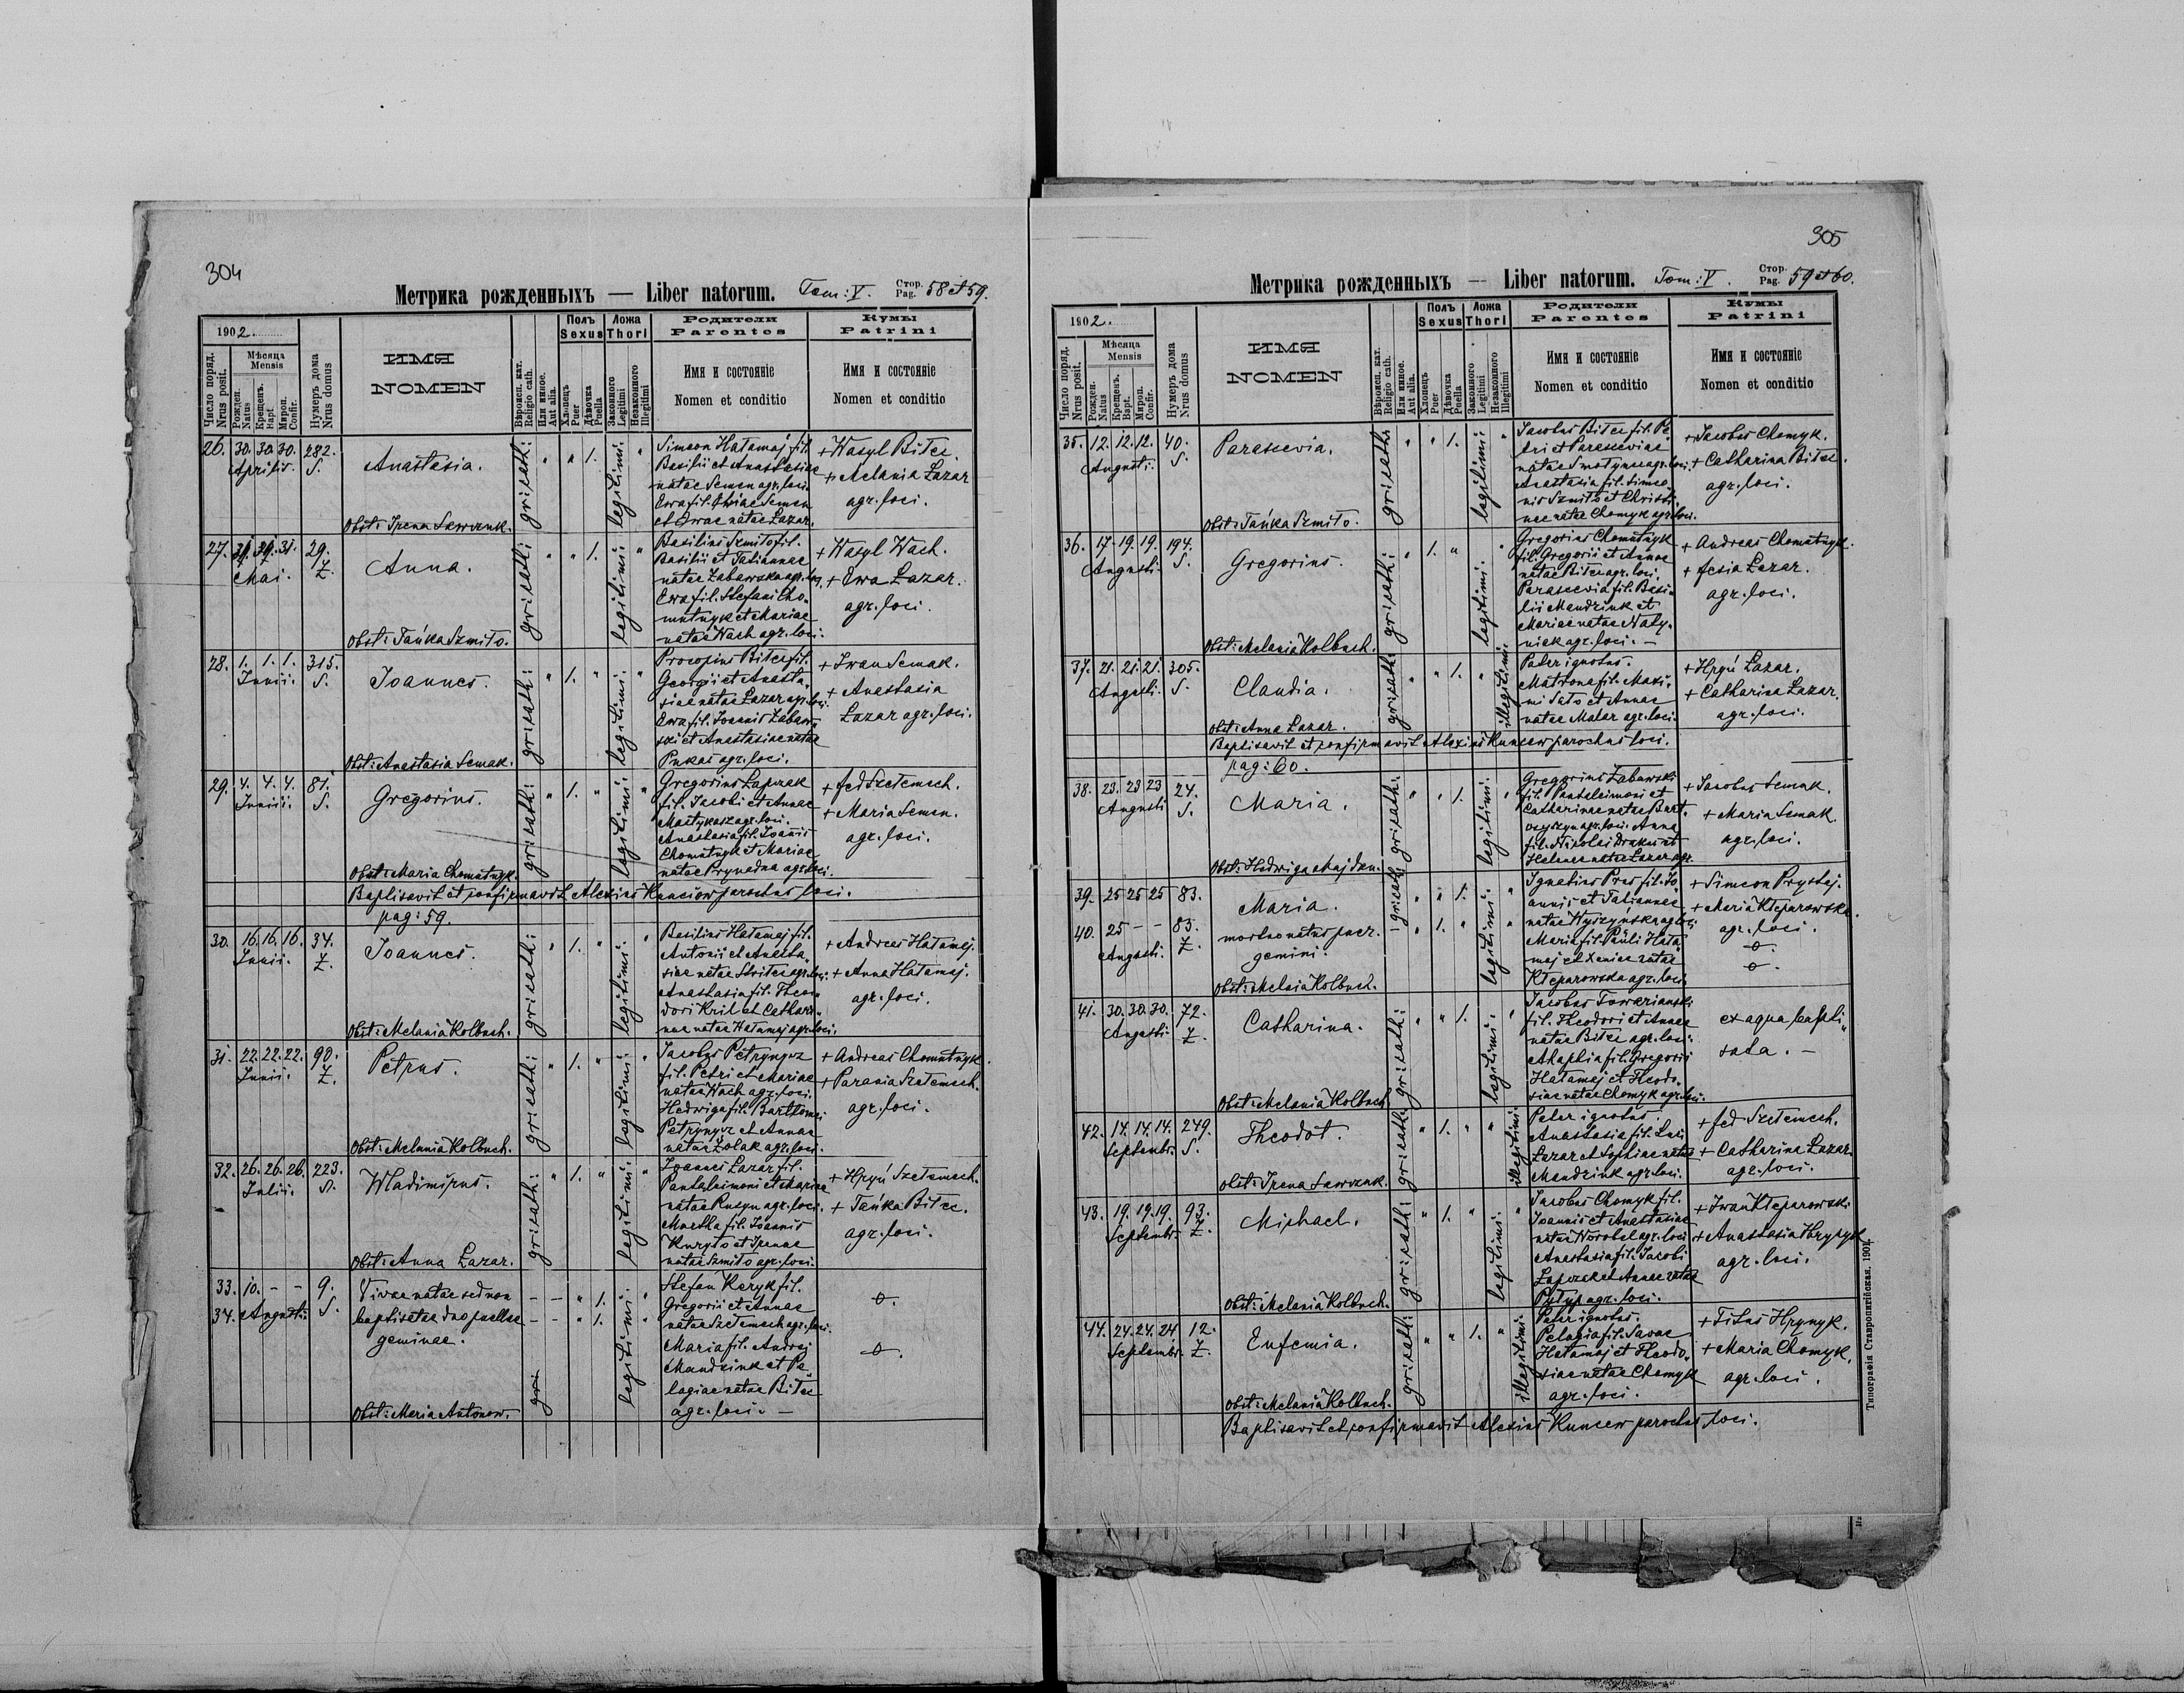 304
Метрика рожденныхъ — Liber natorum. Tom: V. Стор. Pag. 58 et 59.
1902.
Число поряд. Nrus posit.
Мѣсяца Mensis
Рожден. Natus
Крещенъ. Bapt.
Мироп. Confir.
Нумеръ дома Nrus domus
ИМЯ
NOMEN
Вѣроисп. кат. Religio cath.
Или инное. Aut alia.
Полъ Sexus
Хлопецъ Puer
Дѣвочка Puella
Ложа Thori
Законного Legitimi
Незаконного Illegitimi
Родители
Parentes
Имя и состояніе
Nomen et conditio
Кумы
Patrini
Имя и состояніе
Nomen et conditio
26. 30. 30. 30. Aprilis. 282. S.
Anastasia.
Obst: Irena Sawczuk.
gr: cath: " " 1. legitimi: "
Simeon Hatamaj fil.
Basilii et Anastasiae
natae Semen agr. loci.
Ewa fil.
et Ewae natae Lazar.
+ Wasyl Bitec.
+ Melania Lazar
agr. loci.
27. 31. Mai. 29. Z.
Anna.
Obst: Tańka Szmiło.
gr: cath: " " 1. legitimi: "
Basilius Szmiło fil.
Basilii et Tatiannae
natae Zabawska agr. loci.
Ewa fil. Stefani Cho-
mutnyk et Mariae
natae Wach agr. loci.
+ Wasyl Wach.
+ Ewa Lazar.
agr. loci.
28. 1. 1. 1. Junii. 315. S.
Joannes.
Obst: Anastasia Semak.
gr: cath: " 1. " legitimi: "
Procopius Bitec fil.
Georgii et Anasta-
siae natae Lazar agr. loci.
Ewa fil. Joannis Zabaw-
ski et Anastasiae natae
Pukas agr. loci.
+ Iwan Semak.
+ Anastasia
Lazar agr. loci.
29. 4. 4. 4. Junii. 81. S.
Gregorius.
Obst: Maria Chomutnyk.
gr: cath: " 1. " legitimi: "
Gregorius Lapczak
fil. Jacobi et Annae
Martykasz agr. loci.
Anastasia fil. Joannis
Chomutnyk et Mariae
natae Prynadna agr. loci.
+ Fed Szetemech.
+ Maria Semen.
agr. loci.
Baptisavit et confirmavit Alexius Kunciów parochus loci.
pag: 59.
30. 16. 16. 16. Junii. 34. Z.
Joannes.
Obst: Melania Kolbuch.
gr: cath: " 1. " legitimi: "
Basilius Hatamaj fil.
Antonii et Anasta-
siae natae agr. loci.
Anastasia fil. Theo-
dori Kril et Cathari-
nae natae Hatamaj agr. loci.
+ Andreas Hatamaj.
+ Anna Hatamaj.
agr. loci.
31. 22. 22. 22. Junii. 90. Z.
Petrus.
Obst: Melania Kolbuch.
gr: cath: " 1. " legitimi: "
Jacobus Petrynycz
fil. Petri et Mariae
natae Wach agr. loci.
Hedwiga fil. Bartłomei
Petrynycz et Annae
natae Żolak agr. loci.
+ Andreas Chomutnyk.
+ Parania Szetemech.
agr. loci.
32. 26. 26. 26. Julii. 223. S.
Wladimirus.
Obst: Anna Lazar.
gr: cath: " 1. " legitimi: "
Joannes Lazar fil.
Pantaleimoni et Mariae
natae Rusyn agr. loci.
Martha fil. Joannis
Kuryło et Irenae
natae Szmiło agr. loci.
+ Hryń Szetemech.
+ Tańka Bitec.
agr. loci.
33. 10. - - 9.
34. Augusti. S.
Vivae natae sed non
baptisatae duo puellae
geminae.
Obst: Maria Antonow.
- - " 1. "
- - " 1.
legitimi:
Stefan Karyk fil.
Gregorii et Annae
natae Szetemech agr. loci.
Maria fil. Andrej
Mandziuk et Pe-
lagiae natae Bitec
agr. loci. —
305
Метрика рожденныхъ — Liber natorum. Tom: V. Стор. Pag. 59 et 60.
1902.
Число поряд. Nrus posit.
Мѣсяца Mensis
Рожден. Natus
Крещенъ. Bapt.
Мироп. Confir.
Нумеръ дома Nrus domus
ИМЯ
NOMEN
Вѣроисп. кат. Religio cath.
Или инное. Aut alia.
Полъ Sexus
Хлопецъ Puer
Дѣвочка Puella
Ложа Thori
Законного Legitimi
Незаконного Illegitimi
Родители
Parentes
Имя и состояніе
Nomen et conditio
Кумы
Patrini
Имя и состояніе
Nomen et conditio
35. 12. 12. 12. Augusti. 40. S.
Parascevia.
Obst: Tańka Szmiło.
gr: cath: " " 1. legitimi: "
Jacobus Bitec fil. Pe-
tri et Parasceviae
natae Smotynec agr. loci.
Anastasia fil. Simeo-
nis Szmiło et Christi-
nae natae Chomyk agr. loci.
+ Jacobus Chomyk.
+ Catharina Bitec.
agr. loci.
36. 17. 19. 19. Augusti. 194. S.
Gregorius.
Obst: Melania Kolbuch.
gr: cath: " 1. " legitimi: "
Gregorius Chomutnyk
fil. Gregorii et Annae
natae Bitec agr. loci.
Parascevia fil. Basi-
lii Mandziuk et
Mariae natae Naty-
niak agr. loci. —
+ Andreas Chomutnyk.
+ Fesia Lazar.
agr. loci.
37. 21. 21. 21. Augusti. 305. S.
Claudia.
Obst: Anna Lazar.
gr: cath: " " 1. " illegitimi:
Pater ignotus.
Matrona fil. Maxi-
mi Sało et Annae
natae Malar agr. loci.
+ Hryń Lazar.
+ Catharina Lazar.
agr. loci.
Baptisavit et confirmavit Alexius Kunciew parochus loci.
pag: 60.
38. 23. 23 23 Augusti 24. S.
Maria.
Obst: Hedwiga Hajdun.
gr: cath: " " 1. legitimi: "
Gregorius Zabawski
fil. Pantaleimoni et
Catharinae natae Bart-
oszyszyn agr. loci. Anna
fil. Nikolai Draku et
Helenae natae Lazar agr.
+ Jacobus Semak.
+ Maria Semak.
agr. loci.
39. 25 25 25 83.
Maria.
gr: cath: " " 1. legitimi: "
40. 25 - - Augusti. 83. Z.
mortuo natus puer.
gemini.
Obst: Melania Kolbuch.
- " 1. "
Ignatius Prus fil. Jo-
annis et Tatiannae
natae Wyszyńska agr. loci.
Maria fil. Pauli Hata-
maj et Xeniae natae
Kteparowska agr. loci.
+ Simeon Prystaj.
+ Maria Kteparowska.
agr. loci.
41. 30. 30. 30. Augusti. 72. Z.
Catharina.
Obst: Melania Kolbuch.
gr: cath: " " 1. legitimi: "
Jacobus Towarianski
fil. Theodori et Annae
natae Bitec agr. loci.
Ahaphia fil. Gregorii
Hatamaj et Theodo-
siae natae Chomyk agr. loci.
ex aqua bapti-
sata. —
42. 14. 14. 14. Septembr. 249. S.
Theodot.
Obst: Irena Sawczuk.
gr: cath: " 1. " " illegitimi:
Pater ignotus.
Anastasia fil. Luci
Lazar et Sophiae natae
Mandziuk agr. loci.
+ Fed Szetemech.
+ Catharina Lazar.
agr. loci.
43. 19. 19. 19. Septembr. 93. Z.
Michael.
Obst: Melania Kolbuch.
gr: cath: " 1. " legitimi: "
Jacobus Chomyk fil.
Joannis et Anastasiae
natae Worobel agr. loci.
Anastasia fil. Jacobi
Lapczak et Annae natae
Pytyp agr. loci.
+ Iwan Kteparowski
+ Anastasia Hrycyk
agr. loci.
44. 24. 24. 24 Septembr. 12. Z.
Eufemia.
Obst: Melania Kolbuch.
gr: cath: " " 1. " illegitimi:
Pater ignotus.
Pelagia fil. Savae
Hatamaj et Theodo-
siae natae Chomyk
agr. loci.
+ Titus Hrynyk.
+ Maria Chomyk.
agr. loci.
Baptisavit et confirmavit Alexius Kunciew parochus loci.
Типографія Ставропигійская. 1901.